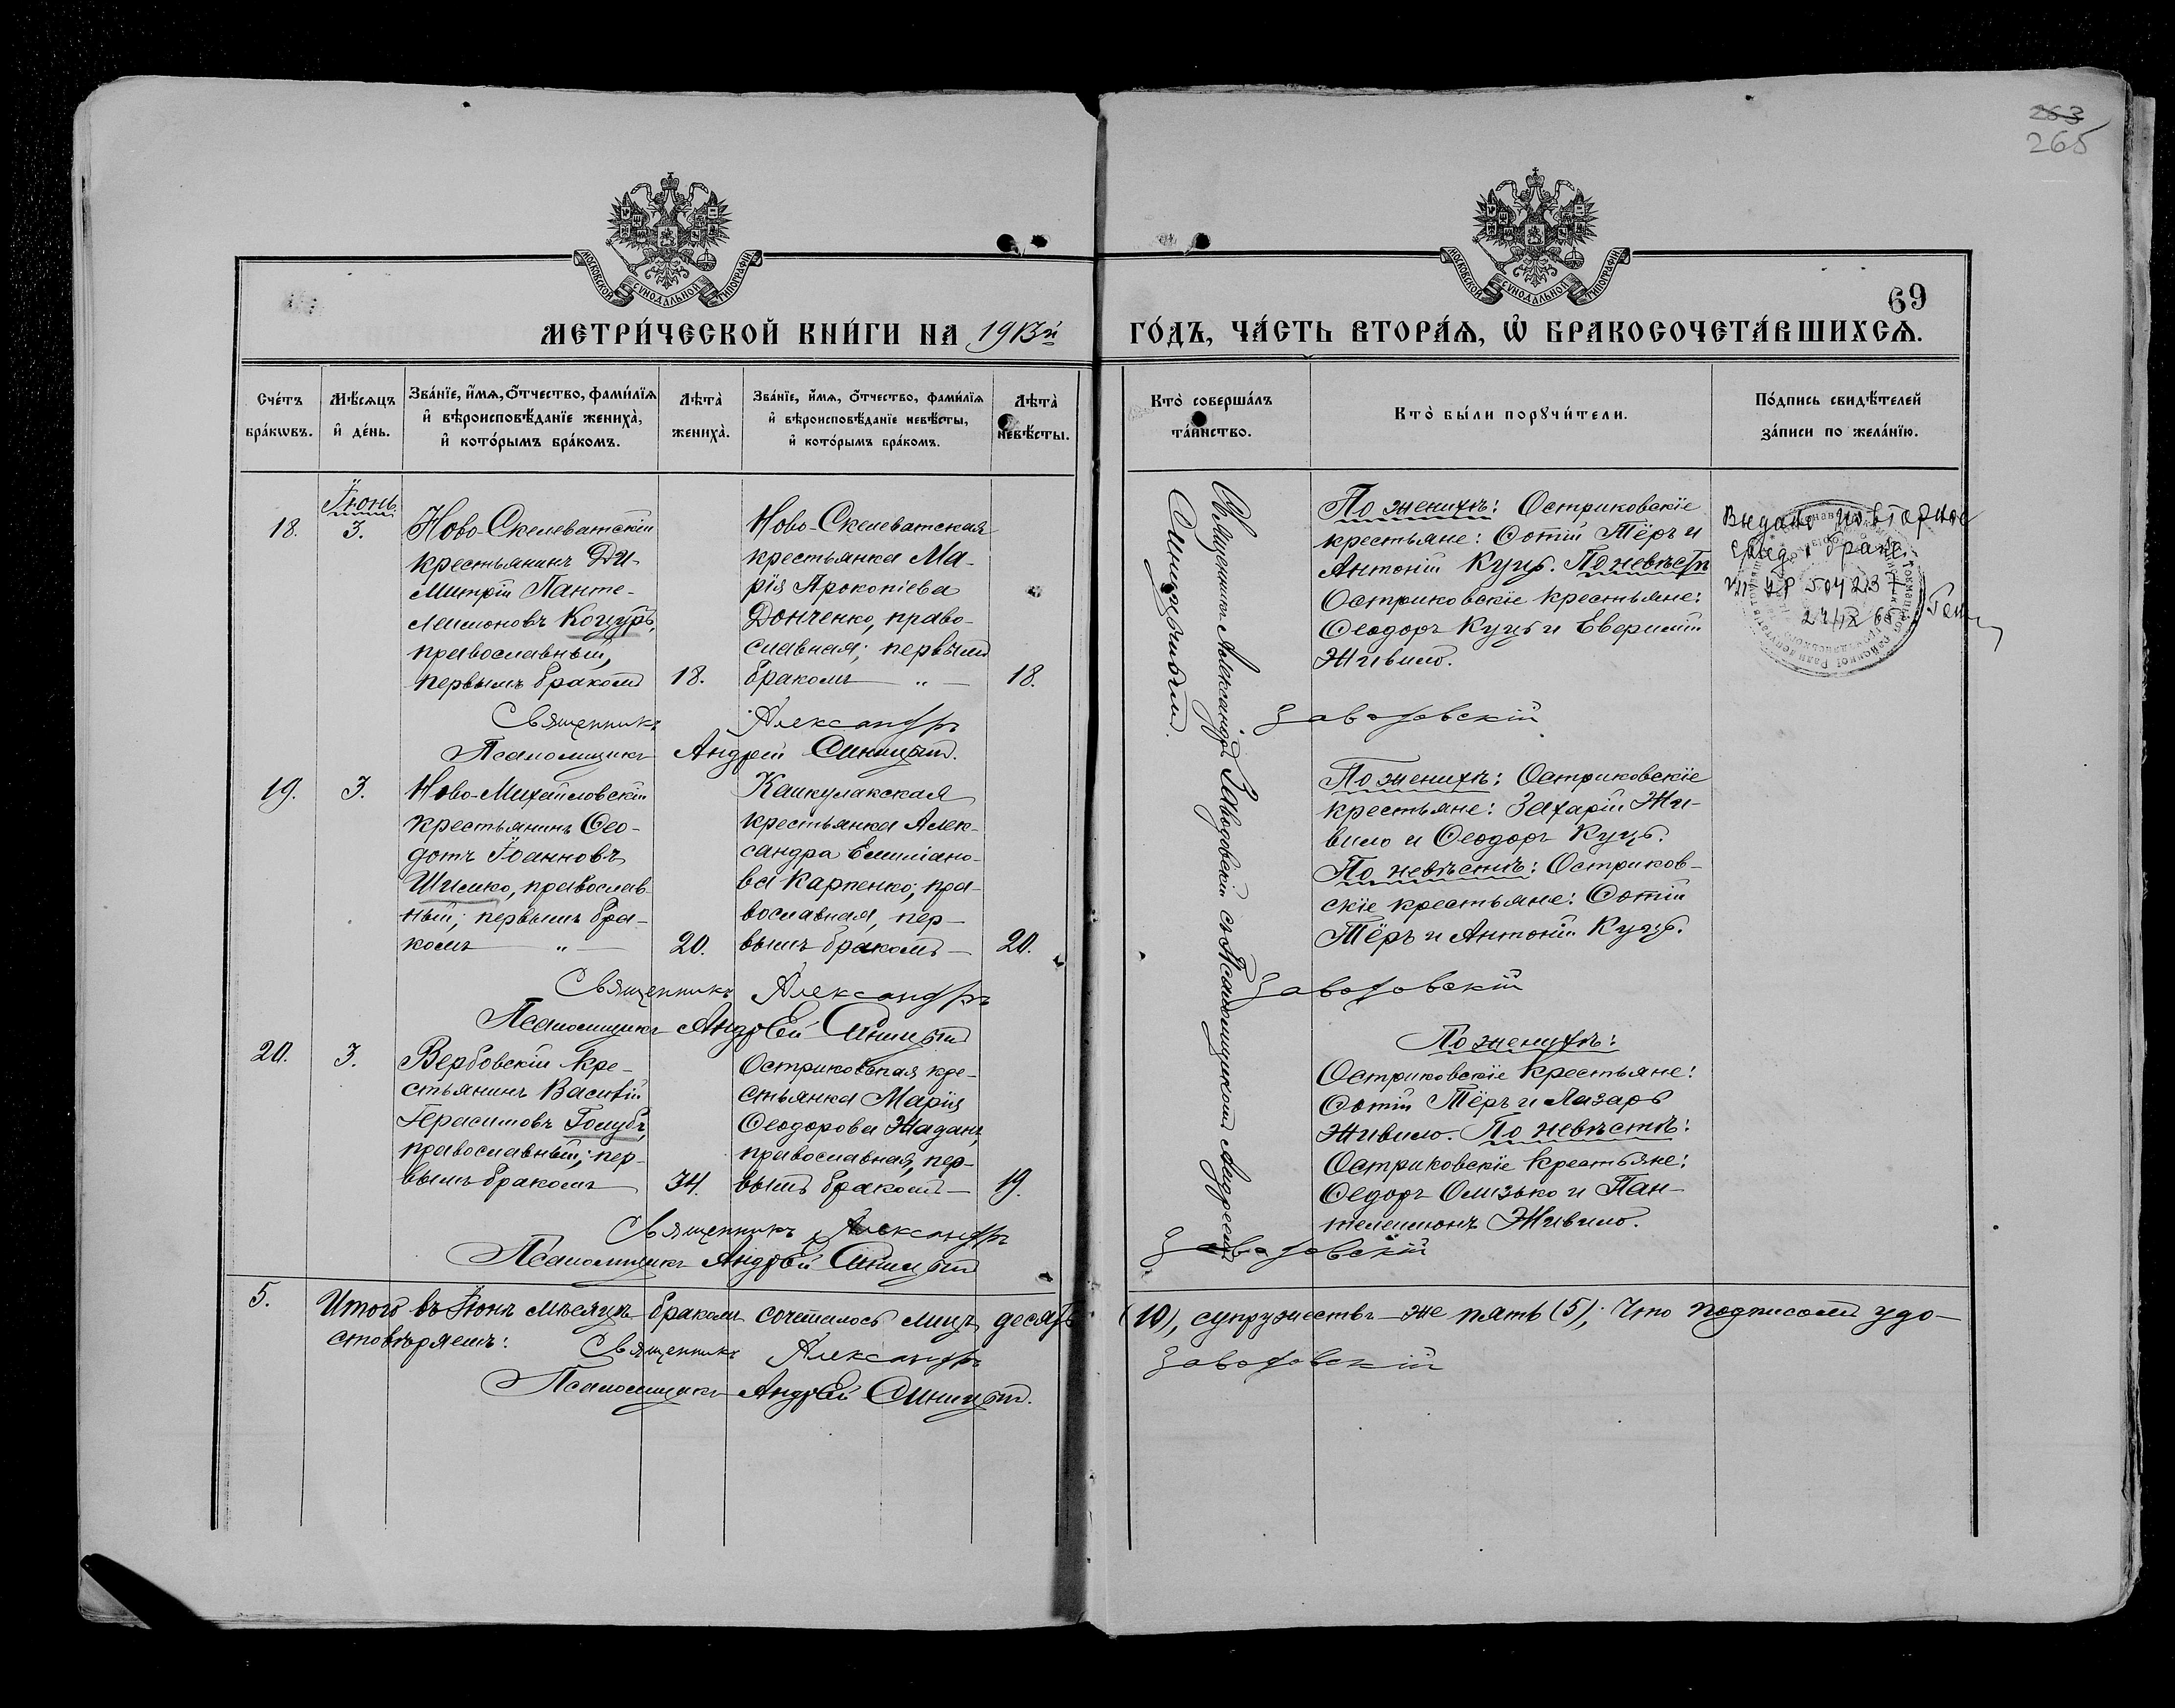 263
265
МОСКОВСКОЙ СѴНОДАЛЬНОЙ ТИПОГРАФІИ
МОСКОВСКОЙ СѴНОДАЛЬНОЙ ТИПОГРАФІИ
69
МЕТРИ́ЧЕСКОЙ КНИ́ГИ НА 1913й ГО́ДЪ, ЧА́СТЬ ВТОРА́Ѧ, Ѡ БРАКОСОЧЕТА́ВШИХСѦ.
Сче́тъ бра́кѡвъ.
Мѣ́сѧцъ и҆ де́нь.
Зва́нїе, и҆́мѧ, ѻ҆́тчество, фами́лїѧ и҆ вѣроисповѣ́данїе жениха̀, и҆ кото́рымъ бра́комъ.
Лѣта̀ жениха̀.
Зва́нїе, и҆́мѧ, ѻ҆́тчество, фами́лїѧ и҆ вѣроисповѣ́данїе невѣ́сты, и҆ кото́рымъ бра́комъ.
Лѣта̀ невѣ́сты.
Кто̀ соверша́лъ та́инство.
Кто̀ бы́ли порꙋчи́тели.
По́дпись свидѣ́телей за́писи по жела́нїю.
Іюнь
18.
3.
Ново-Скелеватскій
крестьянинъ Ди-
митрій Панте-
леимоновъ Коцуръ,
православный,
первымъ бракомъ
18.
Ново-Скелеватская
крестьянка Ма-
рія Прокопіева
Донченко, право-
славная; первымъ
бракомъ — „ —
18.
Священникъ Александръ Заводовскій съ Псаломщикомъ Андреемъ
Синицынымъ.
По женихѣ: Остриковскіе
крестьяне: Фотій Тёръ и
Антоній Куцъ. По невѣстѣ
Остриковскіе крестьяне:
Ѳеодоръ Куцъ и Еверилій
Живило.
Видано повторное
свид о браке
504237
Священникъ Александръ Заводовскій
Псаломщикъ Андрей Синицынъ.
19.
3.
Ново-Михайловскій
крестьянинъ Ѳео-
дотъ Іоанновъ
Шилико, православ-
ный; первымъ бра-
комъ — „ —
20.
Канкулакская
крестьянка Алек-
сандра Емиліано-
ва Карпенко, пра-
вославная, пер-
вымъ бракомъ —
20.
По женихѣ: Остриковскіе
крестьяне: Захарій Жи-
вило и Ѳеодоръ Куцъ.
По невѣстѣ: Остриков-
скіе крестьяне: Фотій
Тёръ и Антоній Куцъ.
Священникъ Александръ Заводовскій
Псаломщикъ Андрей Синицынъ
20.
3.
Вербовскій кре-
стьянинъ Василій
Герасимовъ Голубъ,
православный; пер-
вымъ бракомъ
34.
Остриковская кре-
стьянка Марія
Ѳеодорова Жаданъ,
православная, пер-
вымъ бракомъ —
19.
По женихѣ:
Остриковскіе крестьяне:
Фотій Тёръ и Лазарь
Живило. По невѣстѣ:
Остриковскіе крестьяне:
Ѳедоръ Олизько и Пан-
телеимонъ Живило.
Священникъ Александръ Заводовскій
Псаломщикъ Андрей Синицынъ
5.
Итого въ Іюнѣ мѣсяцѣ бракомъ сочеталось лицъ десять (10), супружествъ — же пять (5); Что подписомъ удо-
стовѣряемъ:
Священникъ Александръ Заводовскій
Псаломщикъ Андрей Синицынъ.